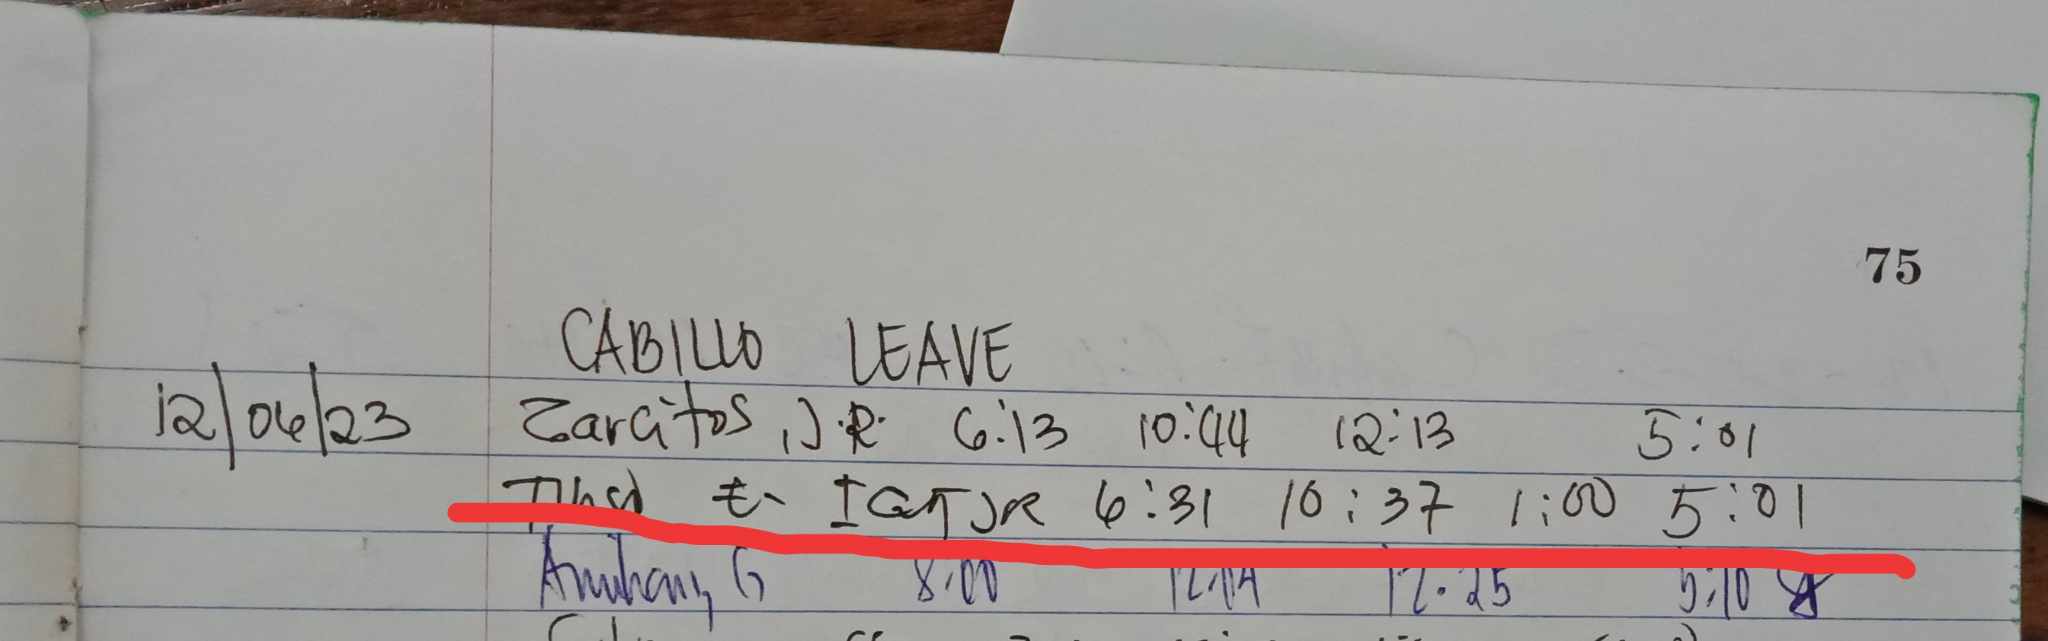 75
CABILLO LEAVE
12/06/23 Zarcitos, J.R. 6:13 10:44 12:13 5:01
6:31 10:37 1:00 5:01
G 8:00 12:04 12:25 5:10